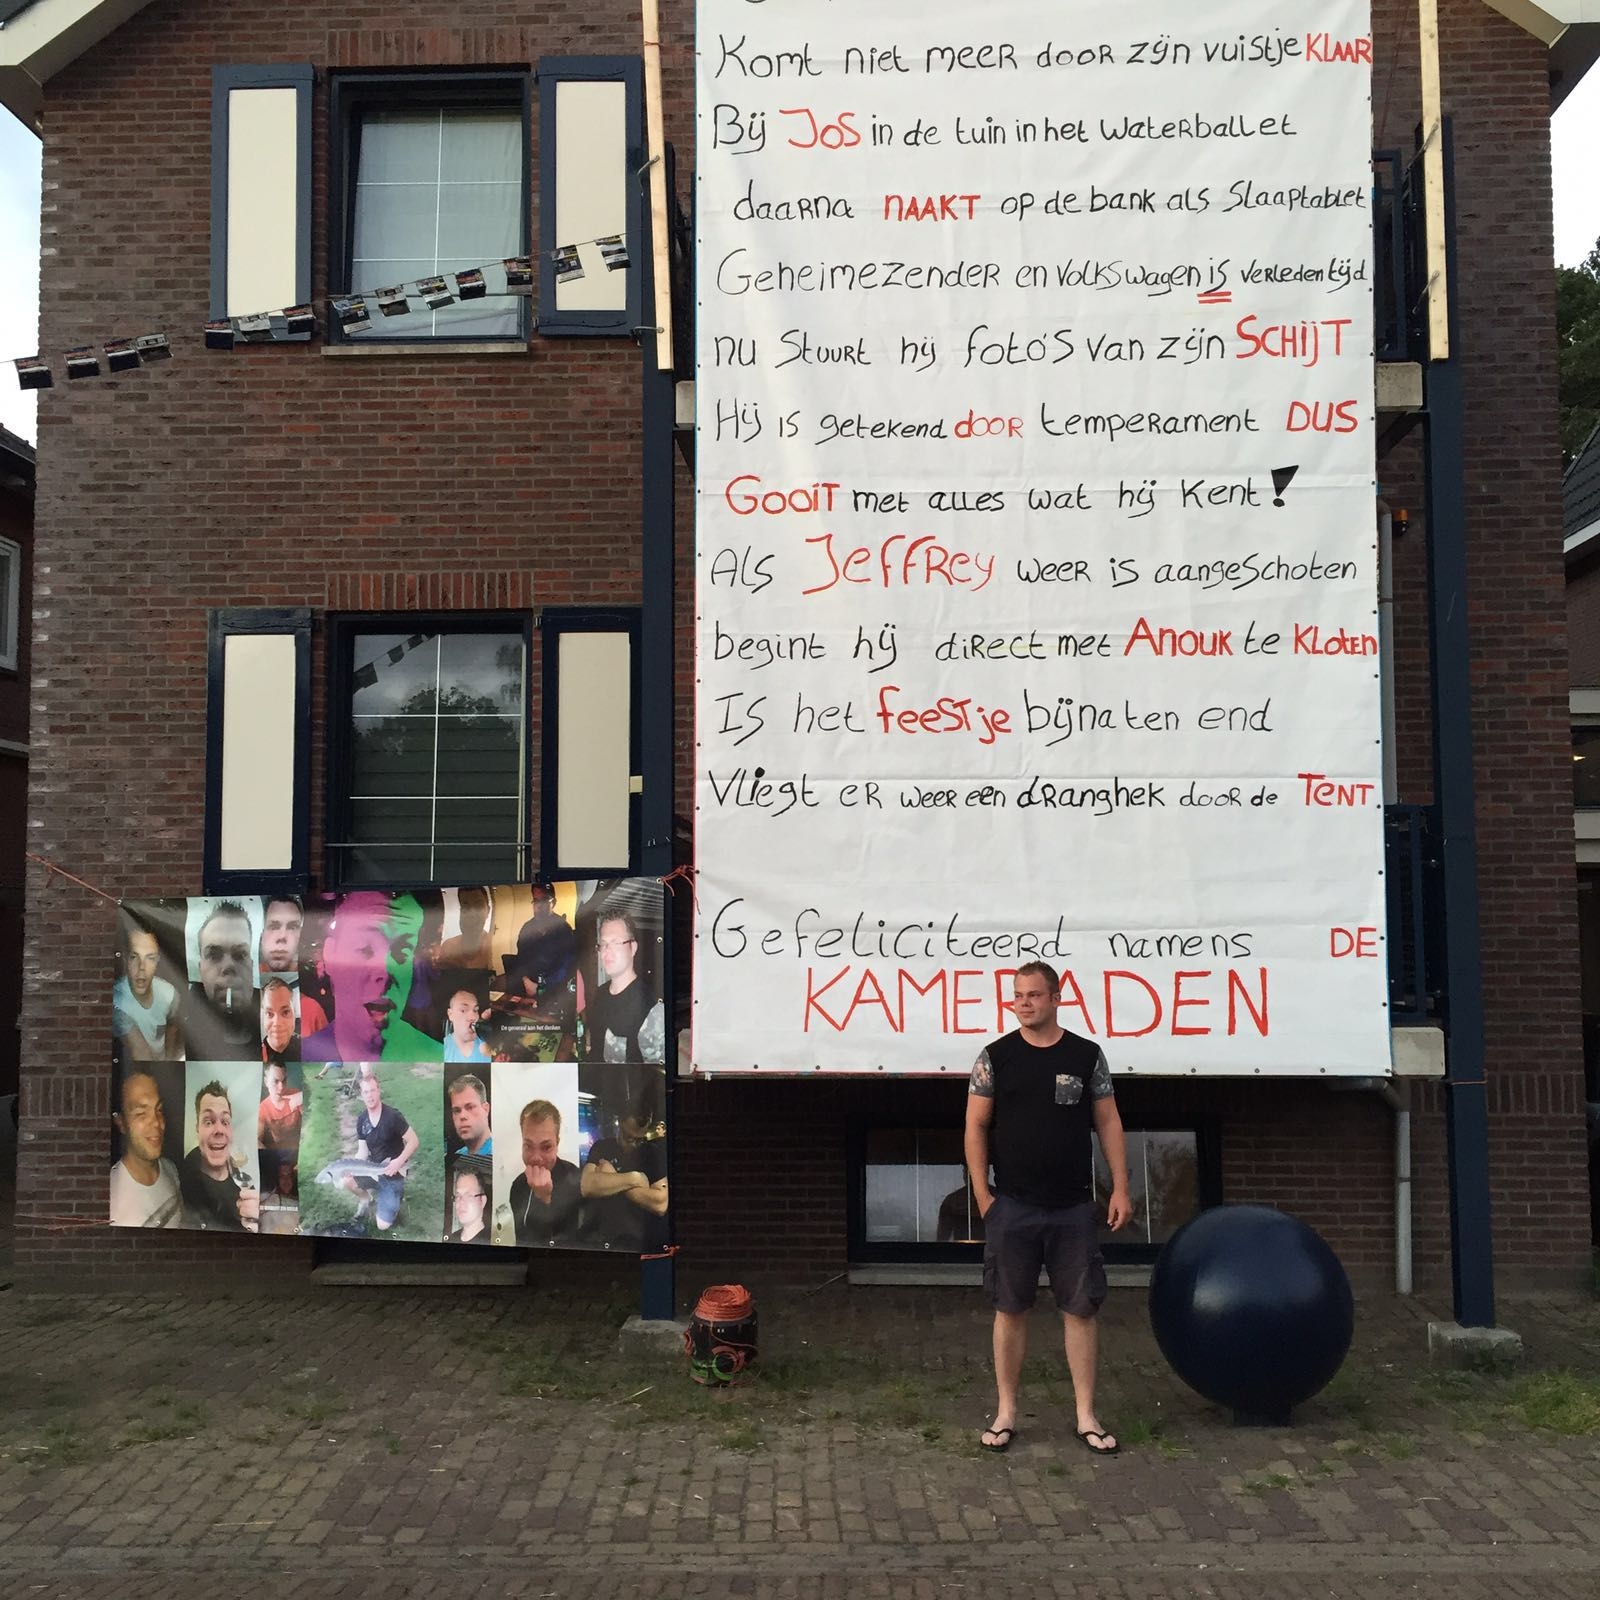 Komt niet meer door zijn vuistje KLAAR
Bij Jos in de tuin in het waterballet
daarna NAAKT op de bank als slaaptablet
Geheimezender en volkswagen is verleden tijd
nu stuurt hij foto's van zijn SCHIJT
Hij is getekend door temperament DUS
GOOIT met alles wat hij kent!
Als JEFFREY weer is aangeschoten
begint hij direct met ANOUK te KLOTEN
Is het feestje bijna ten end
vliegt er weer een dranghek door de TENT
Gefeliciteerd namens DE
KAMERADEN
De generaal aan het denken